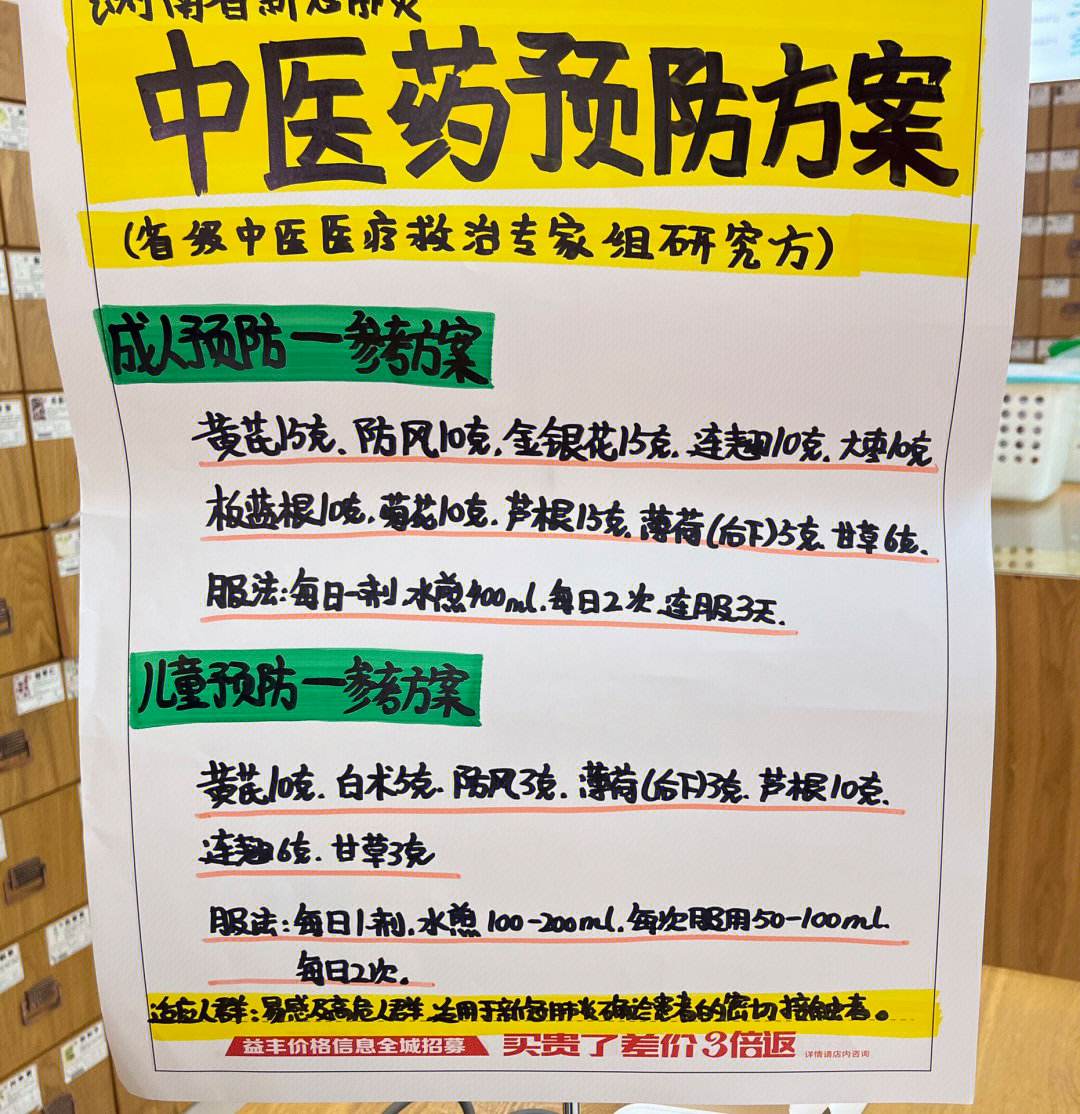 湖南省新冠肺炎
中医药预防方案
(省级中医医疗救治专家组研究方)
成人预防一参考方案
黄芪15克、防风10克,金银花15克,连翘10克,大枣10克
板蓝根10克,菊花10克,芦根15克,薄荷(后下)5克.甘草6克.
服法:每日一剂.水煎400ml.每日2次.连服3天.
儿童预防一参考方案
黄芪10克.白术5克.防风3克.薄荷(后下)3克.芦根10克.
连翘6克.甘草3克
服法:每日1剂,水煎100-200ml,每次服用50-100ml.
每日2次。
适应人群:易感及高危人群,适用于新冠肺炎确诊患者的密切接触者。
益丰价格信息全城招募 买贵了差价3倍返 详情请店内咨询